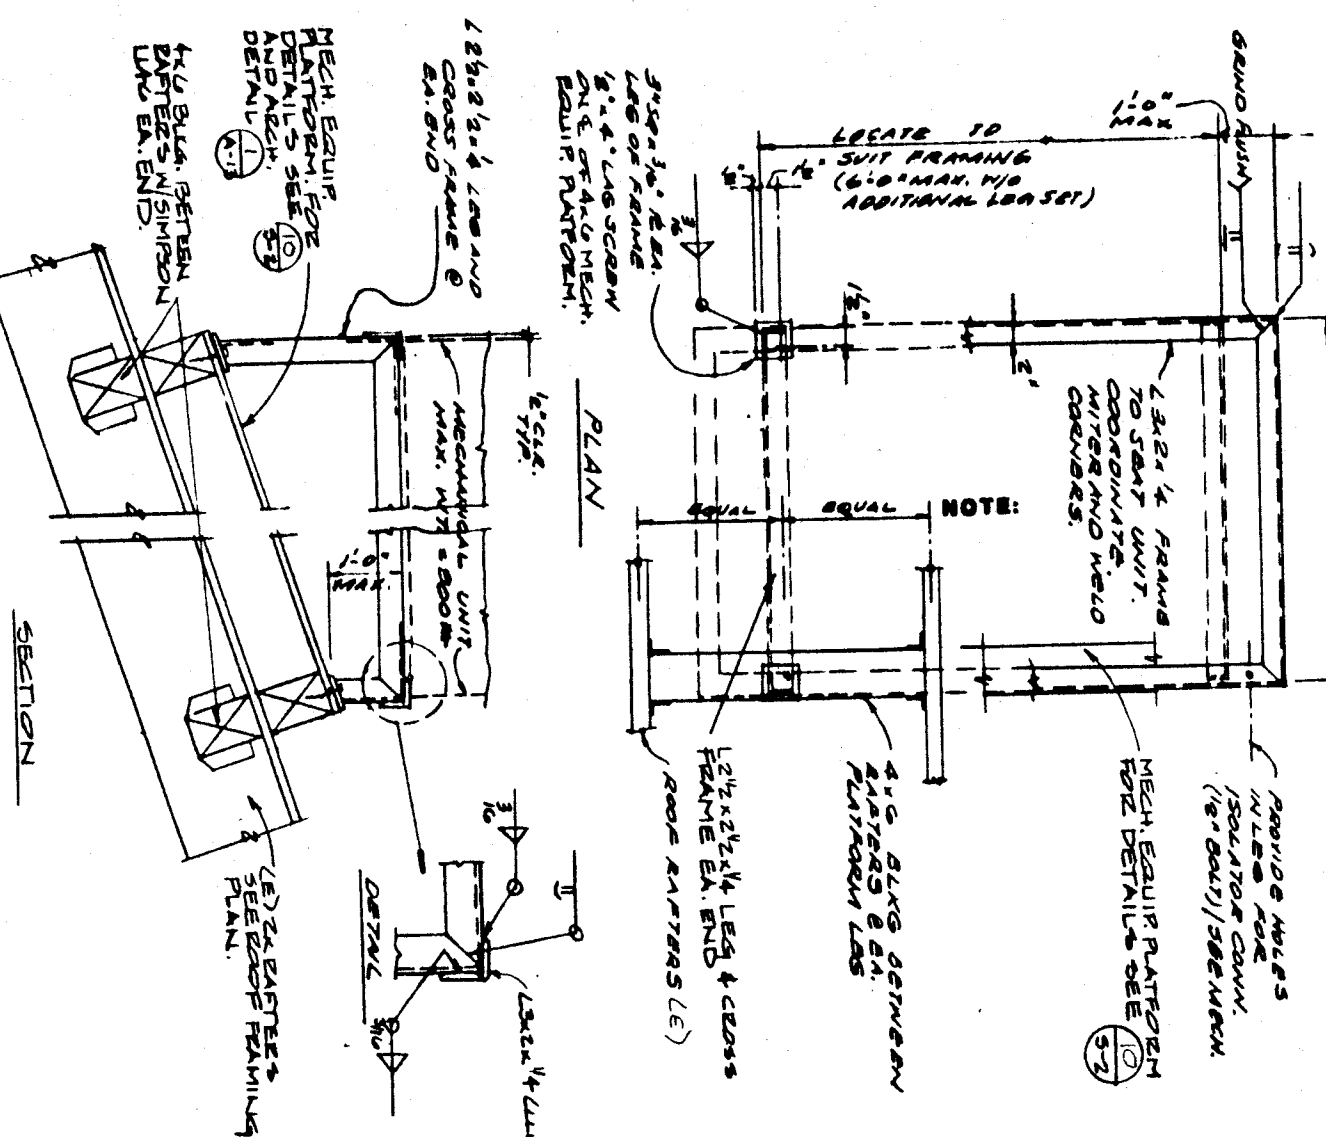 GRIND FLUSH
1'-0"
MAX
LOCATE TO
SUIT FRAMING
(6'-0" MAX. W/O
ADDITIONAL LEG SET)
1½"
3
16
3" SQ x 3/16" PL EA.
LEG OF FRAME
½" x 4" LAG SCREW
ON ℄ OF 4x6 MECH.
EQUIP. PLATFORM.
1½"
2"
L3x2x¼ FRAME
TO SEAT UNIT.
COORDINATE.
MITER AND WELD
CORNERS.
PLAN
EQUAL
EQUAL
NOTE:
PROVIDE HOLES
IN LEG FOR
ISOLATOR CONN.
(½" BOLTS) / SEE MECH.
MECH. EQUIP. PLATFORM
FOR DETAILS SEE
10
S-2
4x6 BLKG BETWEEN
RAFTERS @ EA.
PLATFORM LEG
L2½x2½x¼ LEG & CROSS
FRAME EA. END
ROOF RAFTERS (E)
L2½x2½x¼ LEG AND
CROSS FRAME @
EA. END
MECH. EQUIP.
PLATFORM. FOR
DETAILS SEE
AND ARCH.
DETAIL
10
S-2
1
A-13
4x6 BLKG. BETEEN
RAFTERS W/SIMPSON
EA. END.
½" CLR.
TYP.
MECHANICAL UNIT
MAX. WT. = 800#
1'-0"
MAX.
SECTION
(E) 2x RAFTERS
SEE ROOF FRAMING
PLAN.
DETAIL
3
16
3/16
L3x2x¼